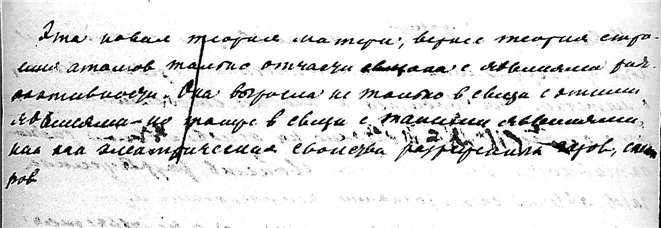 Эта новая теория матери, вернее теория строе-
ния атомов только отчасти связана с явлениями ради-
оактивности. Она выросла не только в связи с этими
явлениями не только в связи с такими явлениями,
как электрические свойства разреженных газов,
ров